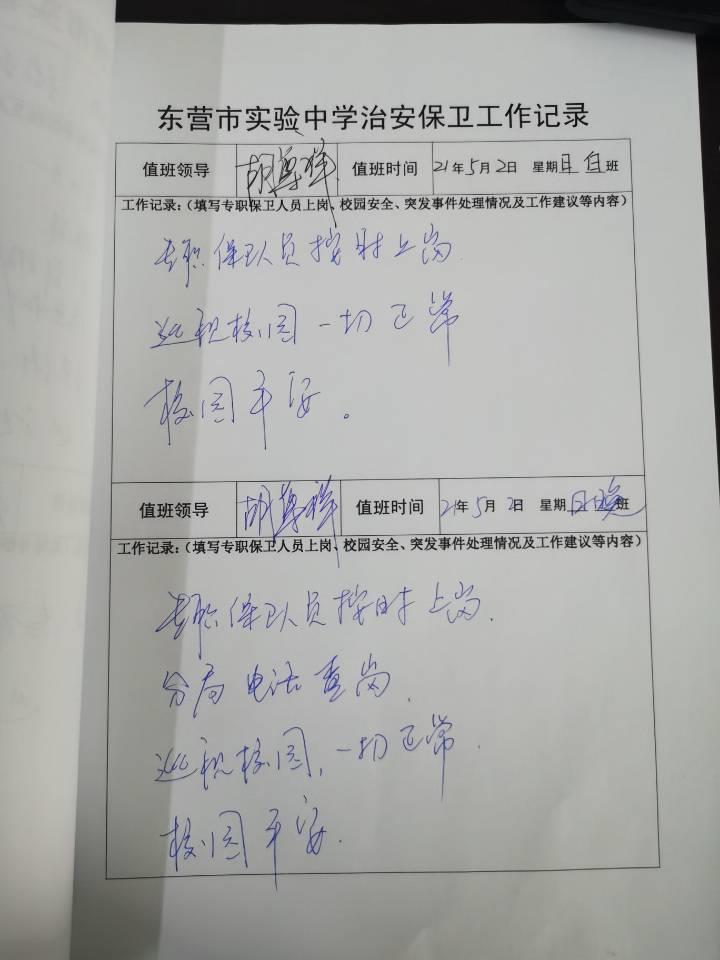 东营市实验中学治安保卫工作记录
值班领导 胡尊祥 值班时间 21年5月2日 星期日白班
工作记录：（填写专职保卫人员上岗、校园安全、突发事件处理情况及工作建议等内容）
专职保卫人员按时上岗
巡视校园一切正常
校园平安。
值班领导 胡尊祥 值班时间 21年5月2日 星期日晚班
工作记录：（填写专职保卫人员上岗、校园安全、突发事件处理情况及工作建议等内容）
专职保卫人员按时上岗.
分局电话查岗.
巡视校园，一切正常.
校园平安.